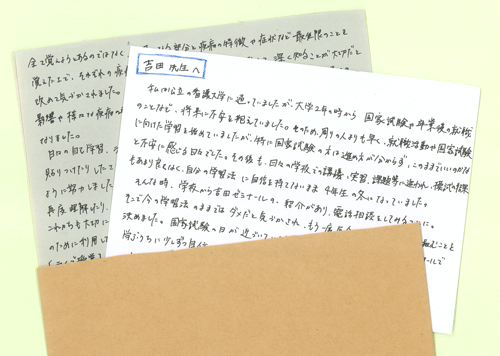 全て覚えようとするのではなく
覚えた上で、それぞれの疾
改めて気づかされました。
影響や様々な疾病の
なりました。
毎日の自己学習、
貼りつけたりして
ように努力しました
再度理解したり、
これからも大切に
のために利用して
部分と疾病の特徴や症状など最低限のことを
深く知ることが大切だと
吉田先生へ
私は公立の看護大学に通っていましたが、大学2年の時から国家試験や卒業後の就職
のことなど、将来に不安を抱えていました。そのため、周りの人よりも早く、就職活動や国家試験
に向けた学習を始めていましたが、特に国家試験の方は進め方が分からず、このままでいいのかな
と不安に感じる日々でした。その後も、日々の学校での講義、実習、課題等に追われ、模試の結果
もあまり良くなく、自分の学習法に自信を持てないまま4年生の冬になっていました。
そんな時、学校から吉田ゼミナールの紹介があり、電話相談をしてみることに。
そこで今の学習法のままではダメだと気づかされ、もう一度
むことを
決めました。国家試験の日が近づいて
ールで
学ぶうちに少しずつ自信